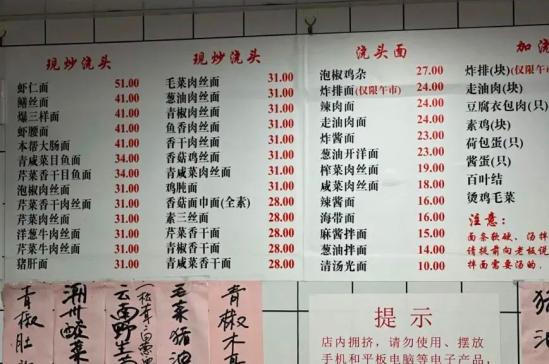 现炒浇头
虾仁面 51.00
鳝丝面 41.00
爆三样面 41.00
虾腰面 41.00
本帮大肠面 41.00
青咸菜目鱼面 34.00
芹菜香干目鱼面 34.00
泡椒肉丝面 31.00
芹菜香干肉丝面 31.00
芹菜肉丝面 31.00
洋葱牛肉丝面 31.00
芹菜牛肉丝面 31.00
猪肝面 31.00
现炒浇头
毛菜肉丝面 31.00
葱油肉丝面 31.00
青椒肉丝面 31.00
鱼香肉丝面 31.00
香干肉丝面 31.00
香菇鸡丝面 31.00
青咸菜肉丝面 31.00
鸡肫面 31.00
香菇面巾面(全素) 28.00
素三丝面 28.00
芹菜香干面 28.00
青椒香干面 28.00
青咸菜香干面 28.00
浇头面
泡椒鸡杂 27.00
炸排面(仅限午市) 24.00
辣肉面 24.00
走油肉面 24.00
炸酱面 23.00
葱油开洋面 23.00
榨菜肉丝面 19.00
咸菜肉丝面 18.00
辣酱面 16.00
海带面 16.00
麻酱拌面 15.00
葱油拌面 14.00
清汤光面 10.00
加浇
炸排(块)(仅限午
走油肉(块)
豆腐衣包肉(只)
素鸡(块)
荷包蛋(只)
酱蛋(只)
百叶结
烫鸡毛菜
注意:
面条软硬、汤拌
请提前向老板说
拌面需要汤的,
青椒肚
潮州酸菜
云南野生
毛菜猪油
青椒木耳
提示
店内拥挤,请勿使用、摆放
手机和平板电脑等电子产品,